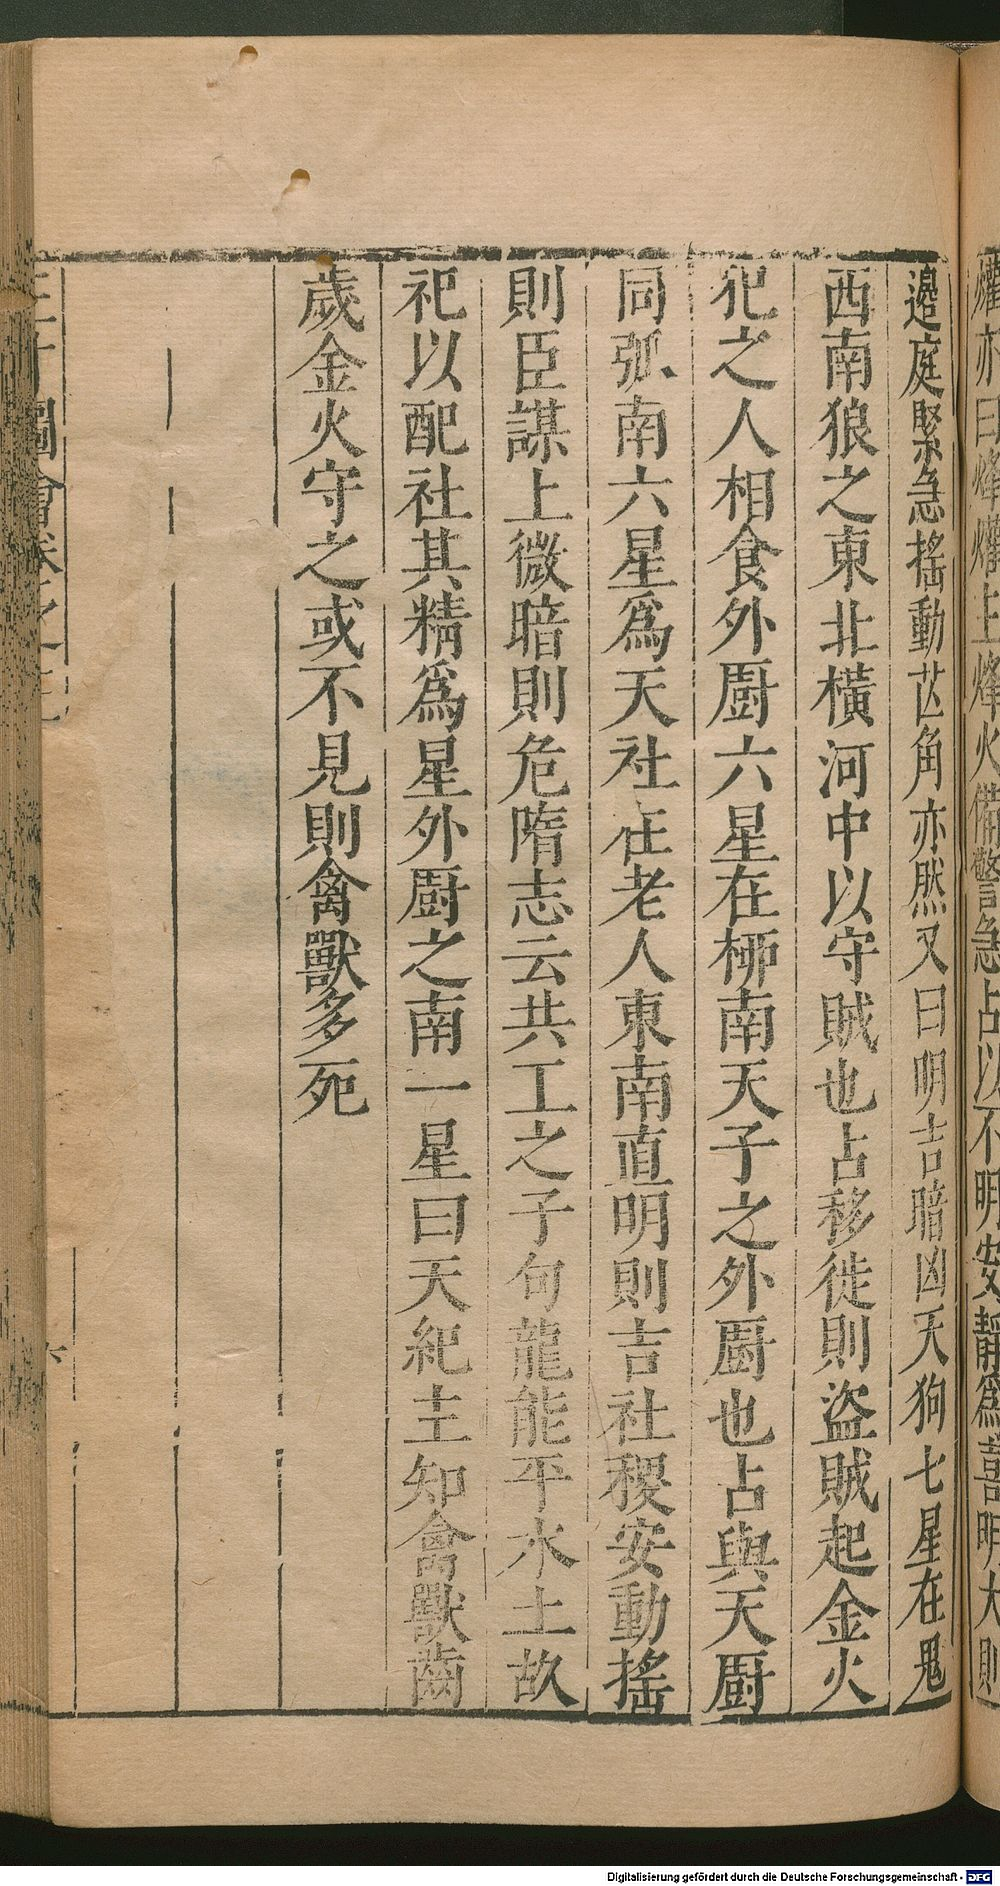 爟亦曰烽爟上烽火備警急占以不明安靜爲善明大則
邉庭緊急搖動芒角亦然又曰明吉暗凶天狗七星在鬼
西南狼之東北橫河中以守賊也占移徙則盜賊起金火
犯之人相食外厨六星在桺南天子之外厨也占與天厨
同弧南六星爲天社在老人東南直明則吉社稷安動搖
則臣謀上微暗則危隋志云共工之子句龍能平水土故
祀以配社其精爲星外厨之南一星曰天紀主知禽獸齒
歲金火守之或不見則禽獸多死
圖會卷之
Digitalisierung gefördert durch die Deutsche Forschungsgemeinschaft - DFG